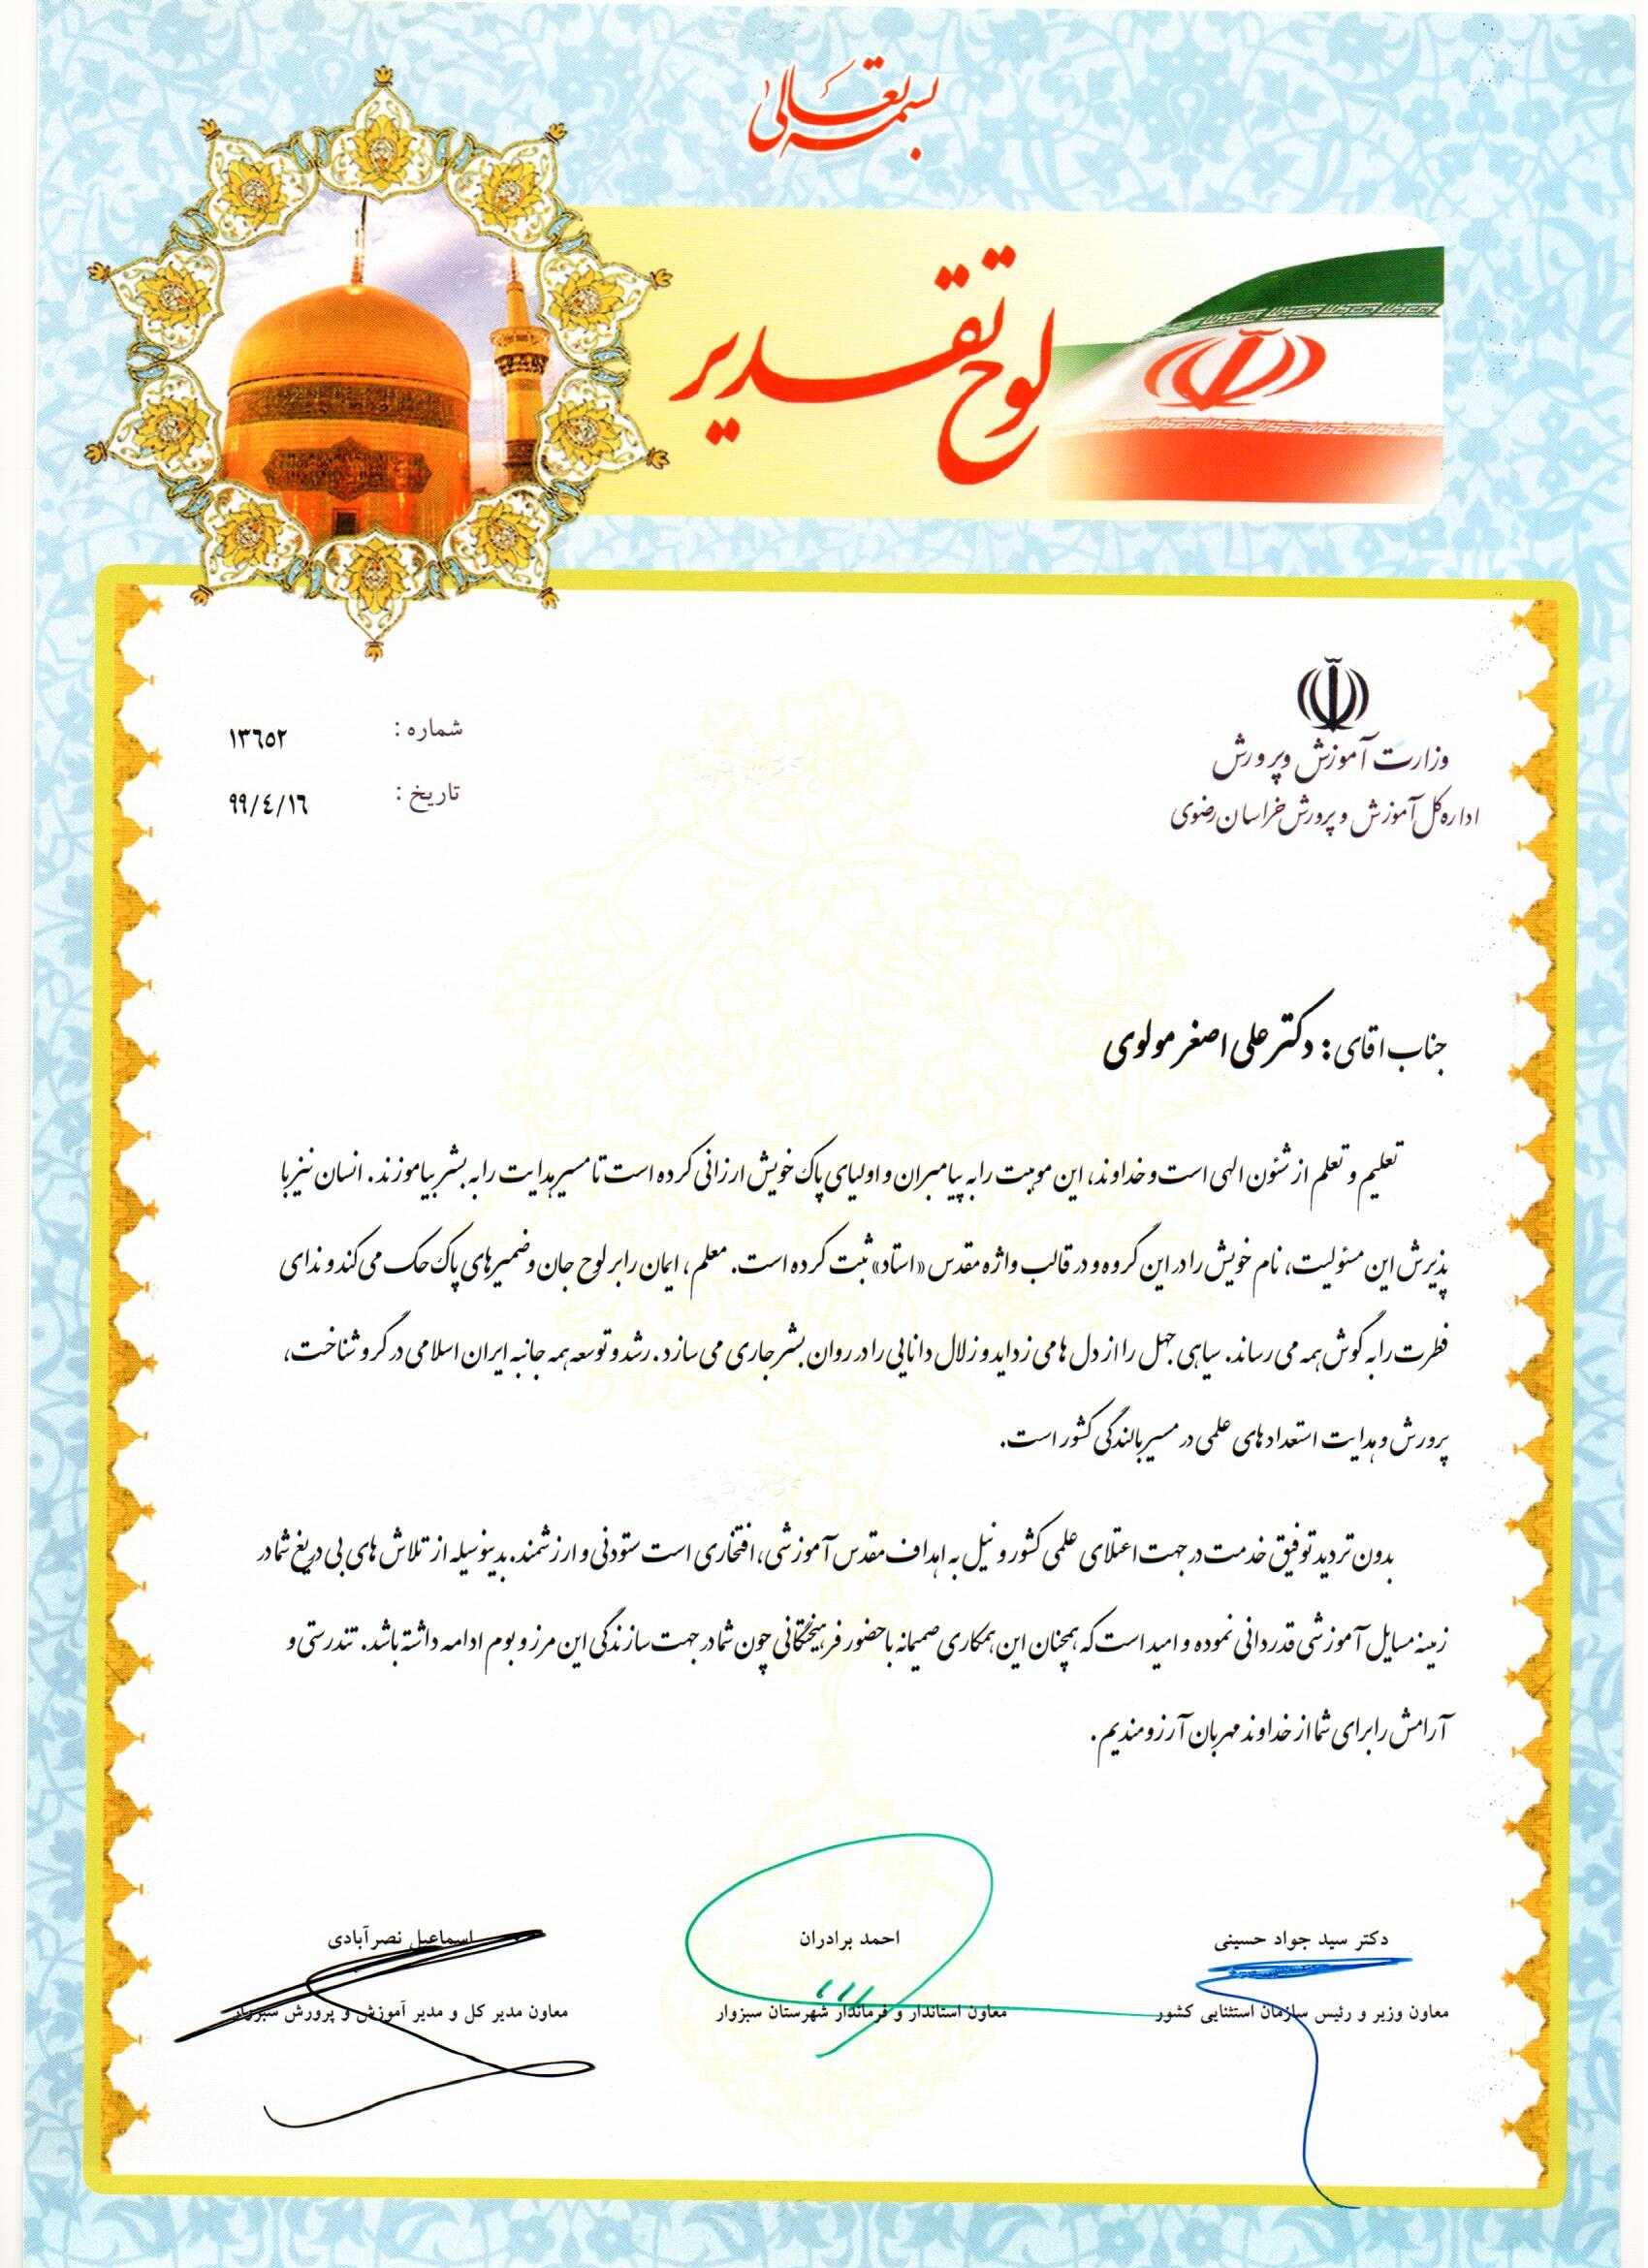 بسمه تعالی
لوح تقدیر
وزارت آموزش و پرورش
اداره کل آموزش و پرورش خراسان رضوی
شماره : ۱۳٦٥۲
تاریخ : ۹۹/٤/۱٦
جناب اقای: دکتر علی اصغر مولوی
تعلیم و تعلم از شئون الهی است و خداوند، این موهبت را به پیامبران و اولیای پاک خویش ارزانی کرده است تا مسیر هدایت را به بشر بیاموزند. انسان نیز با
پذیرش این مسئولیت، نام خویش را در این گروه و در قالب واژه مقدس «استاد» ثبت کرده است. معلم، ایمان را بر لوح جان و ضمیرهای پاک حک می کند و ندای
فطرت را به گوش همه می رساند. سیاهی جهل را از دل ها می زداید و زلال دانایی را در روان بشر جاری می سازد. رشد و توسعه همه جانبه ایران اسلامی در گرو شناخت،
پرورش و هدایت استعداد های علمی در مسیر بالندگی کشور است.
بدون تردید توفیق خدمت در جهت اعتلای علمی کشور و نیل به اهداف مقدس آموزشی، افتخاری است ستودنی و ارزشمند. بدینوسیله از تلاش های بی دریغ شما در
زمینه مسایل آموزشی قدردانی نموده و امید است که همچنان این همکاری صمیمانه با حضور فرهیختگانی چون شما در جهت سازندگی این مرز و بوم ادامه داشته باشد. تندرستی و
آرامش را برای شما از خداوند مهربان آرزومندیم.
دکتر سید جواد حسینی
معاون وزیر و رئیس سازمان استثنایی کشور
احمد برادران
معاون استاندار و فرماندار شهرستان سبزوار
اسماعیل نصرآبادی
معاون مدیر کل و مدیر آموزش و پرورش سبزوار